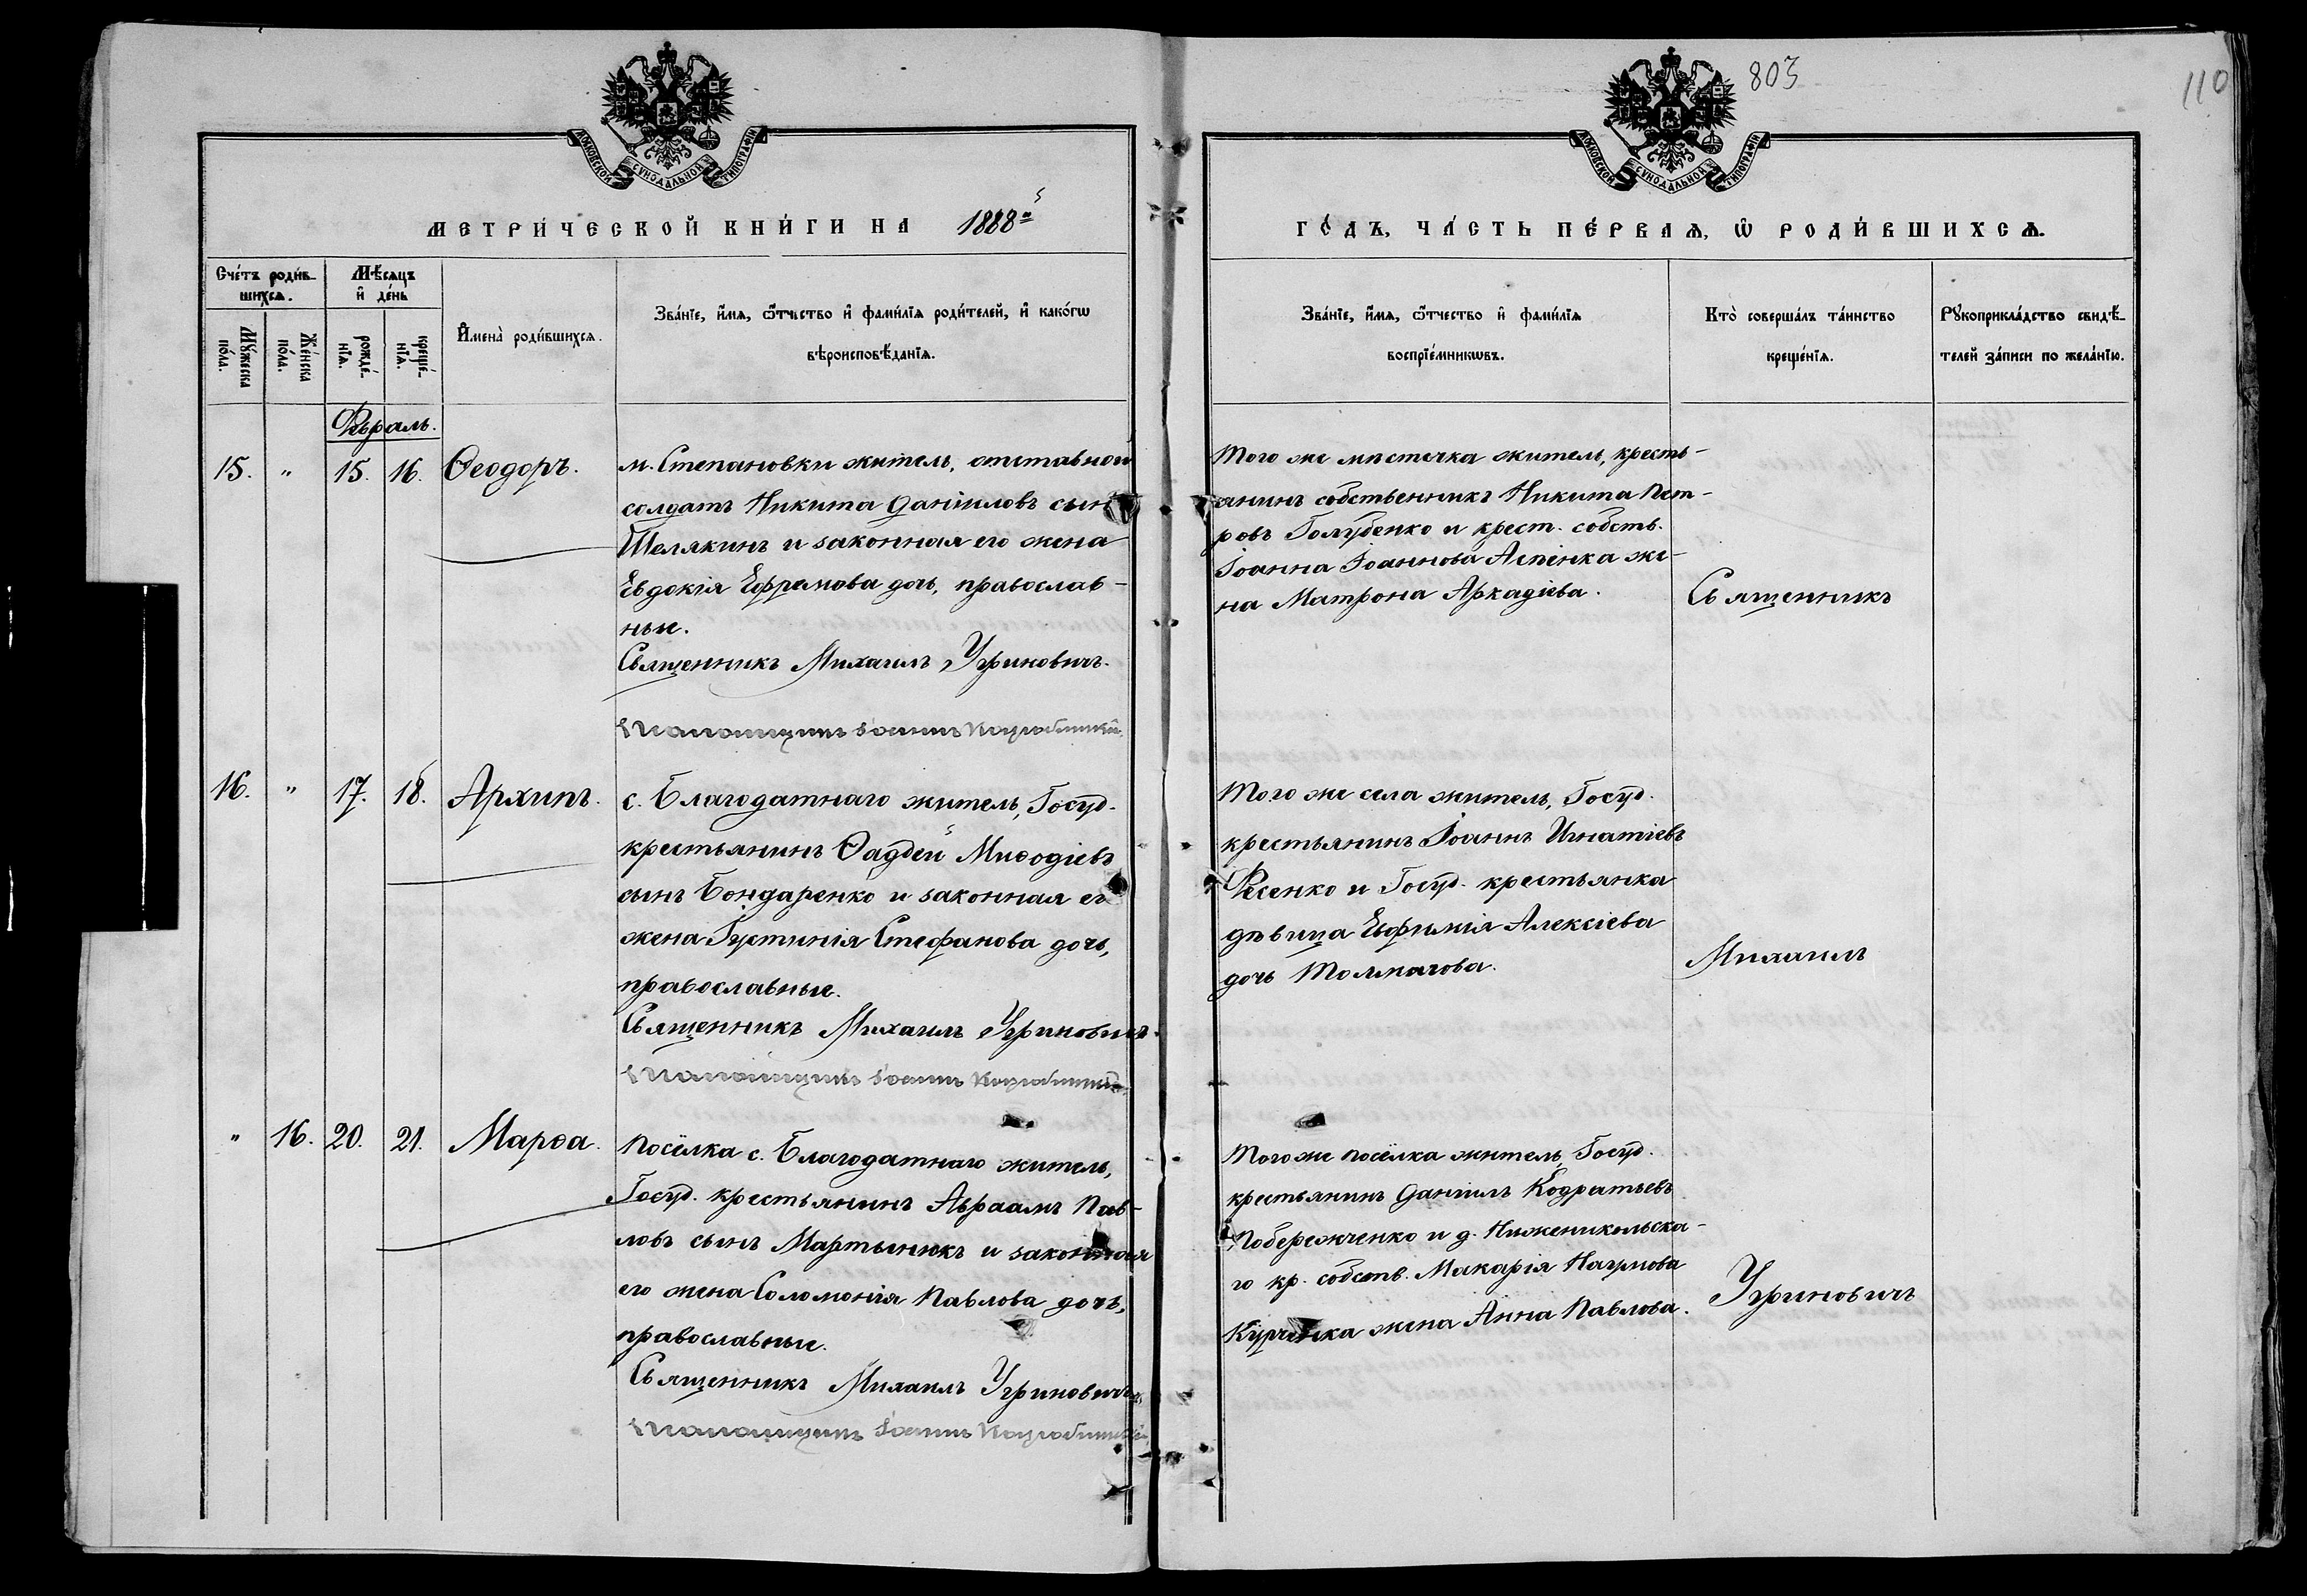 803
110
МОСКОВСКОЙ СѴНОДАЛЬНОЙ ТИПОГРАФІИ
МОСКОВСКОЙ СѴНОДАЛЬНОЙ ТИПОГРАФІИ
МЕТРИ́ЧЕСКОЙ КНИ́ГИ НА 1888й
ГО́ДЪ, ЧА́СТЬ ПЕ́РВАѦ, Ѿ РОДИ́ВШИХСѦ.
Сче́тъ роди́в-
шихсѧ.
Мꙋ́жеска по́ла.
Же́нска по́ла.
Мѣ́сѧцъ
и҆ де́нь
рожде́-
нїѧ.
креще́-
нїѧ.
И҆мена̀ роди́вшихсѧ.
Зва́нїе, и҆́мѧ, ѻ҆́тчество и҆ фами́лїѧ роди́телей, и҆ како́гѡ
вѣроисповѣ́данїѧ.
Зва́нїе, и҆́мѧ, ѻ҆́тчество и҆ фами́лїѧ
воспрїе́мникѡвъ.
Кто̀ соверша́лъ та́инство
креще́нїѧ.
Рꙋкоприкла́дство свидѣ́-
телей за́писи по жела́нїю.
Февраль.
15. " 15. 16. Ѳеодоръ.
м. Степановки житель, отставной
солдатъ Никита Даніиловъ сынъ
Шелякинъ и законная его жена
Евдокія Ефремова дочь, православ-
ные.
Священникъ Михаилъ Угриновичъ.
Псаломщикъ Іоаннъ
Того же мѣстечка житель, кресть-
янинъ собственникъ Никита Пет-
ровъ Голубенко и крест. собств.
Іоанна Іоаннова Аспенка же-
на Матрона Аркадіева.
Священникъ
16. " 17. 18. Архипъ.
с. Благодатнаго житель, Госуд.
крестьянинъ Ѳаддей Меѳодіевъ
сынъ Бондаренко и законная его
жена Іустинія Стефанова дочь,
православные.
Священникъ Михаилъ Угриновичъ.
Псаломщикъ Іоаннъ
Того же села житель, Госуд.
крестьянинъ Іоаннъ Игнатіевъ
Фесенко и Госуд. крестьянка
дѣвица Евфимія Алексіева
дочь Толмачова.
Михаилъ
" 16. 20. 21. Марѳа.
Посёлка с. Благодатнаго житель,
Госуд. крестьянинъ Авраамъ Пав-
ловъ сынъ Мартынюкъ и законная
его жена Соломонія Павлова дочь,
православные.
Священникъ Михаилъ Угриновичъ.
Псаломщикъ Іоаннъ
Того же посёлка житель, Госуд.
крестьянинъ Даніилъ Кодратьевъ
Побережченко и д. Ниженикольска-
го кр. собств. Макарія Наумова
Курченка жена Анна Павлова.
Угриновичъ